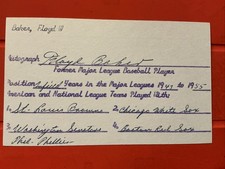 Baker, Floyd W
Autograph Floyd Baker
Former Major League Baseball Player
Position Infield Years in the Major Leagues 1943 to 1955
American and National League Teams Played With:
St. Louis Browns Chicago White Sox
Washington Senators Boston Red Sox
Phil. Phillies